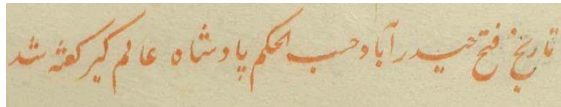 تاریخ فتح حیدرآباد حسب الحکم پادشاه عالم گیر گفته شد